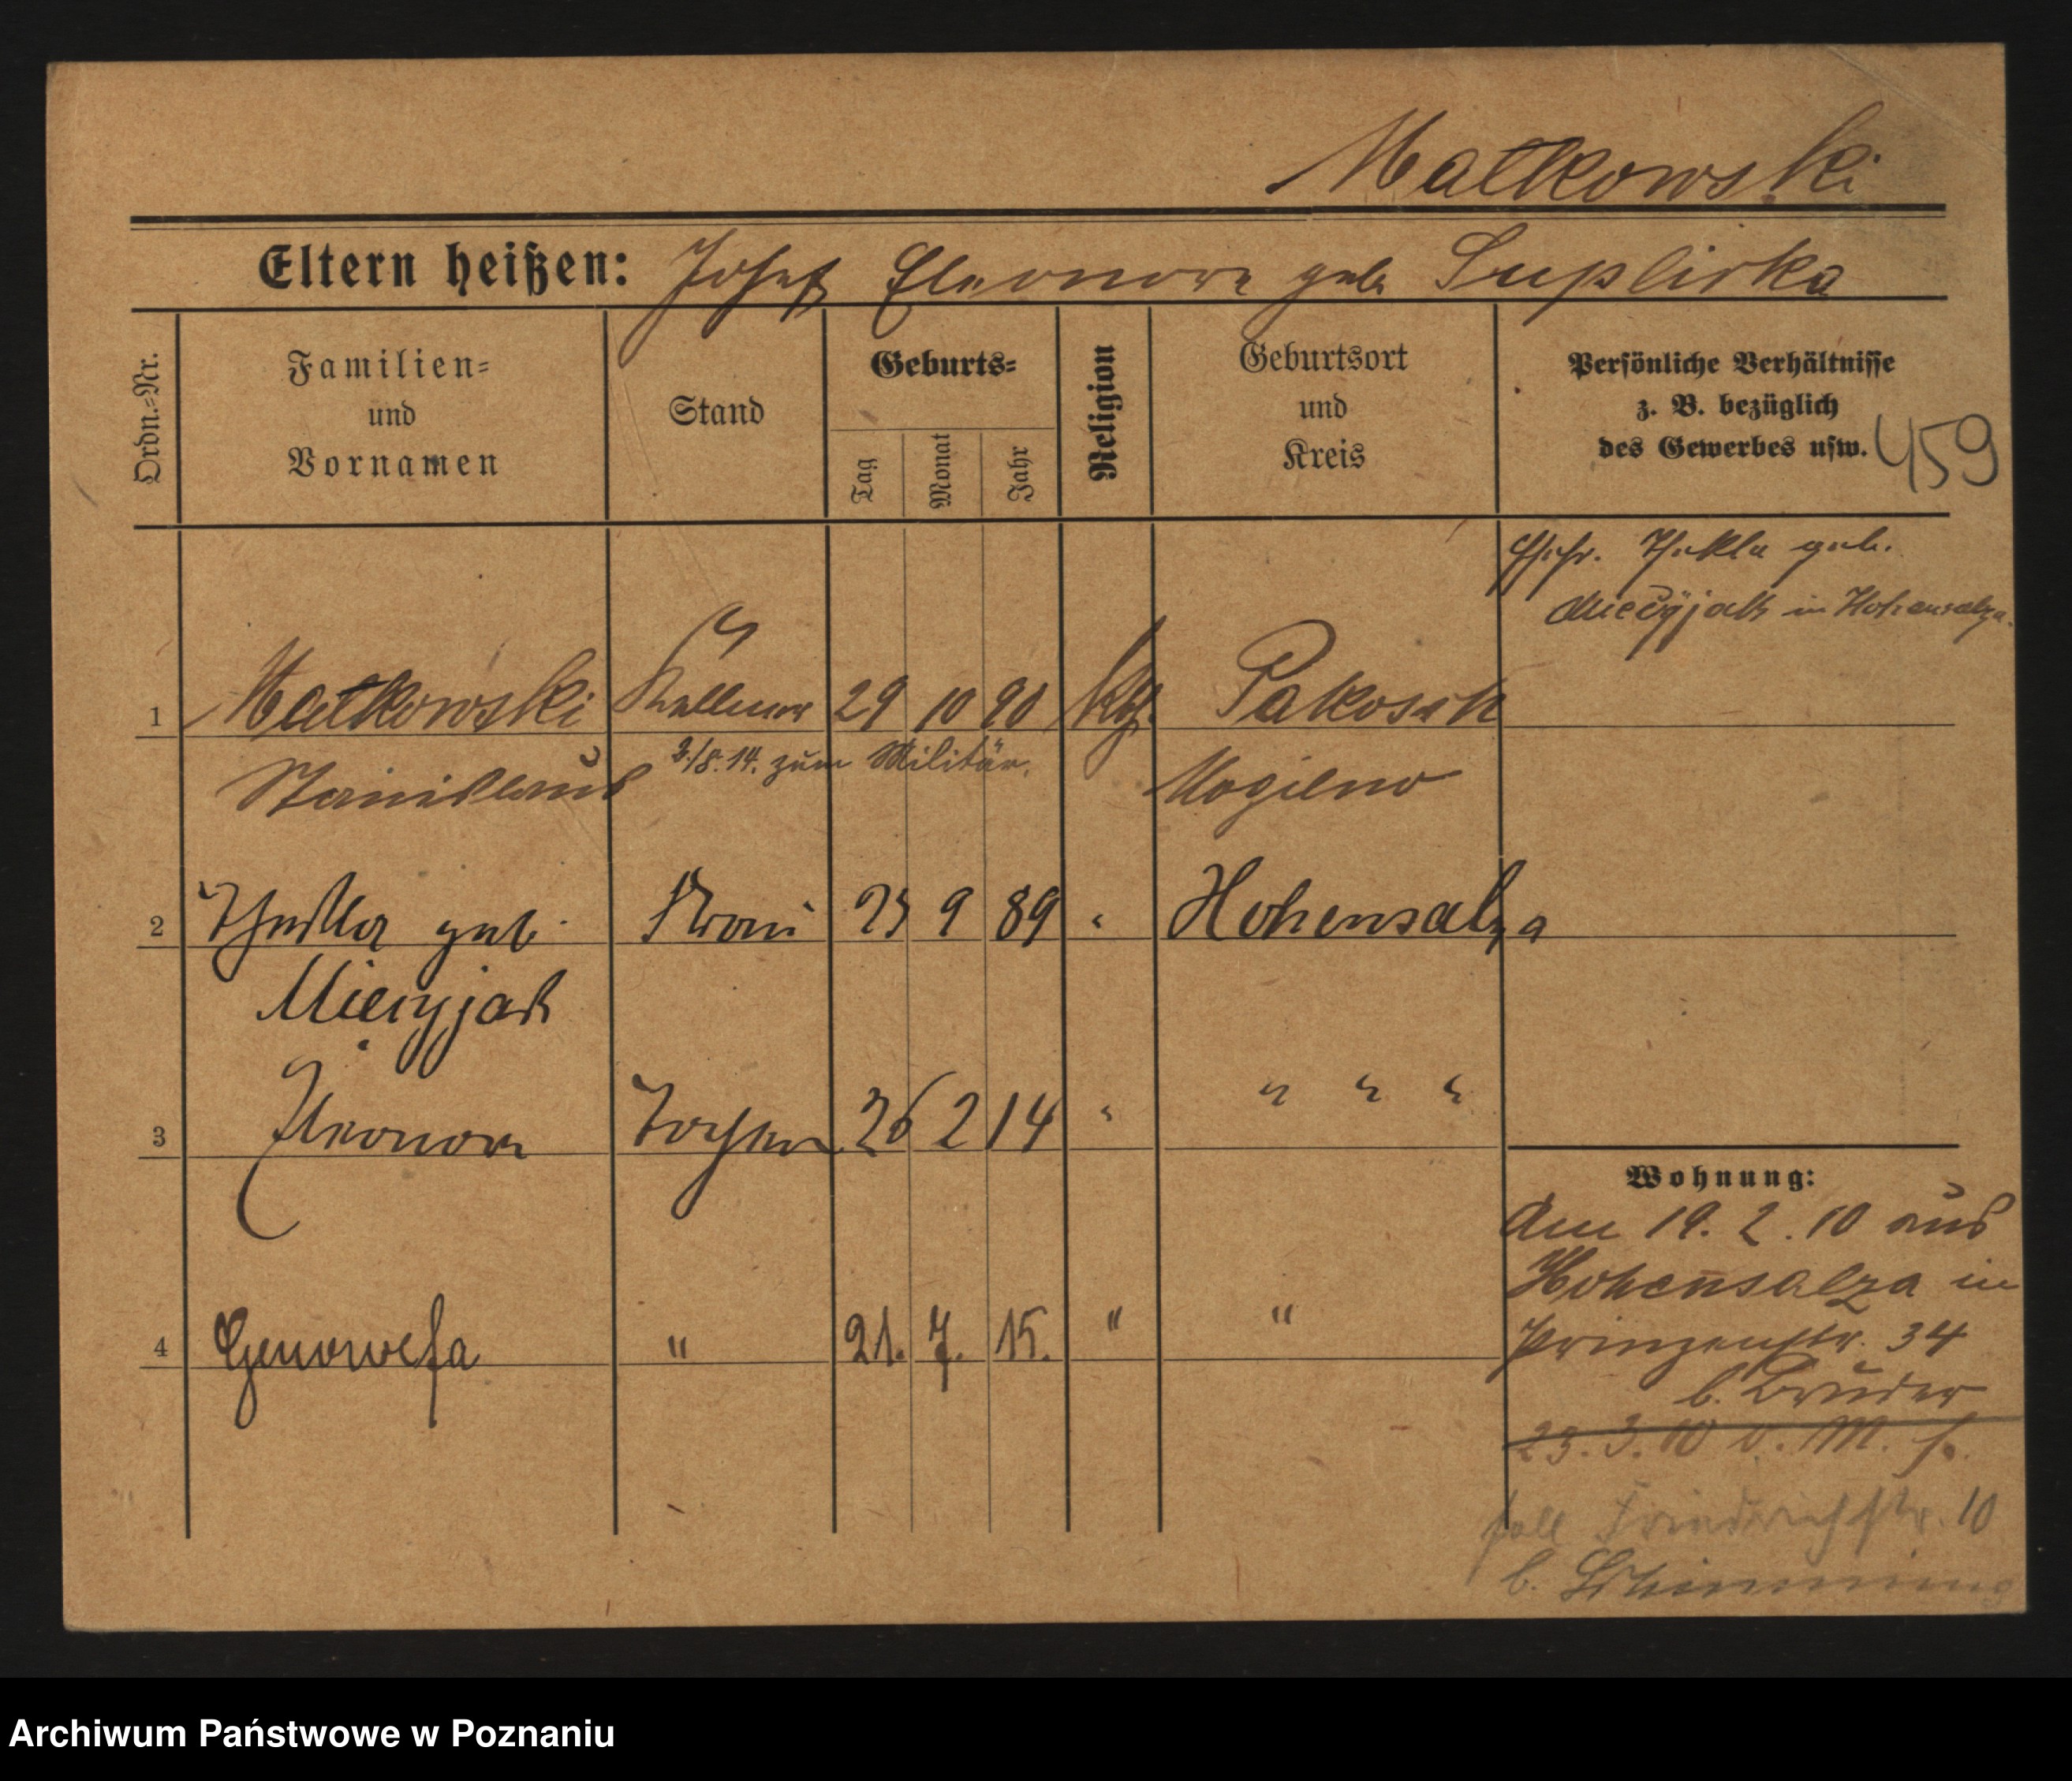 Matkowski
Eltern heißen: Josef Eleonore geb. Suplicka
Ordn.=Nr.
Familien=
und
Vornamen
Stand
Geburts=
Tag
Monat
Jahr
Religion
Geburtsort
und
Kreis
Persönliche Verhältnisse
z. B. bezüglich
des Gewerbes usw.
459
Thekla geb.
in Hohensalza.
1 Matkowski Kellner 29 10 90 kth. Pakosch
Stanislaus 2./8.14. zum Militär. Mogilno
2 Thekla geb. Frau 23 9 89 " Hohensalza
Mieczyjak
3 Eleonore Tochter 26 2 14 " " " "
4 Genowefa " 21. 7. 15. " "
Wohnung:
Am 19. 2. 10 aus
Hohensalza in
Prinzenstr. 34
b. Bruder
23. 3. 10 v. M. f.
soll Friedrichstr. 10
b.
Archiwum Państwowe w Poznaniu